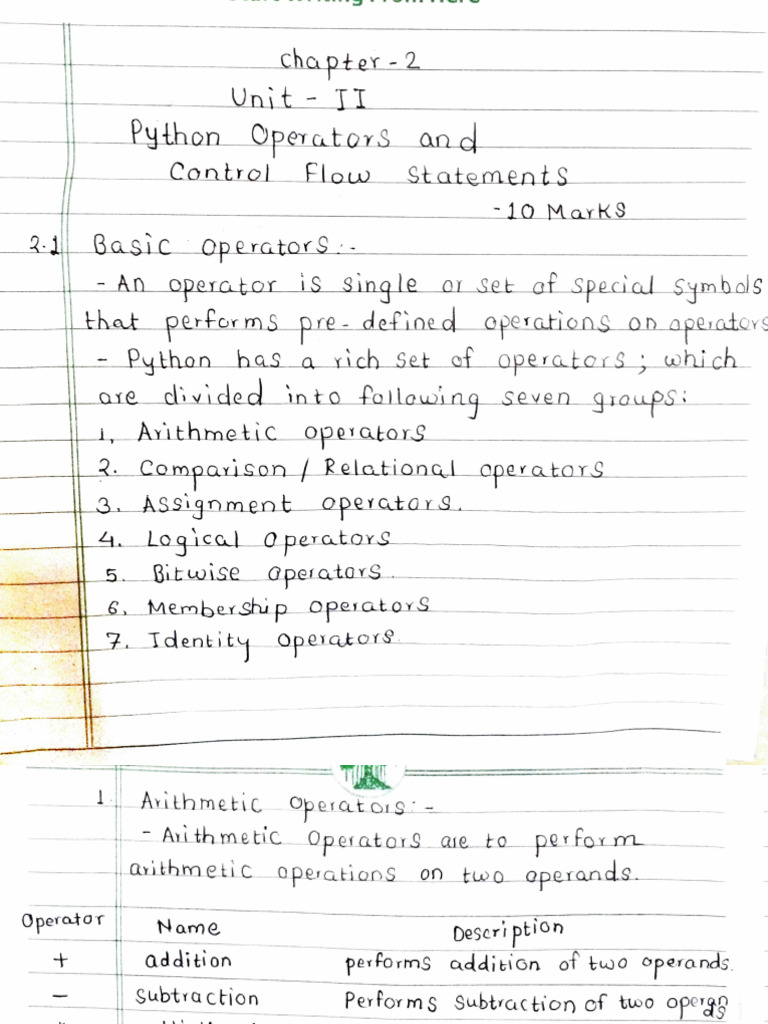 Chapter-2
Unit - II
Python Operators and
Control Flow Statements
-10 Marks
2.1 Basic operators:-
- An operator is single or set of special symbols
that performs pre-defined operations on operators
- Python has a rich set of operators; which
are divided into following seven groups:
1, Arithmetic operators
2. Comparison / Relational operators
3. Assignment operators.
4. Logical Operators
5. Bitwise Operators.
6. Membership operators
7. Identity operators.
1. Arithmetic Operators:-
- Arithmetic Operators are to perform
arithmetic operations on two operands.
Operator Name Description
+ addition performs addition of two operands.
- Subtraction Performs Subtraction of two operands